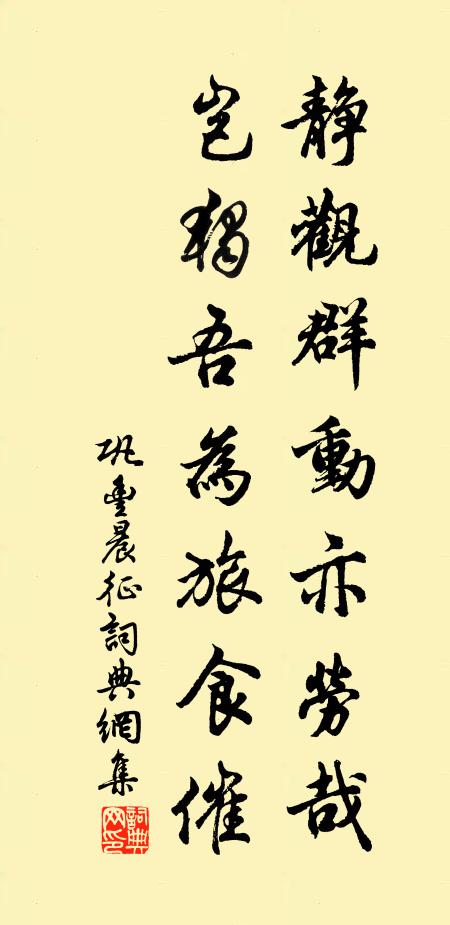 靜觀群動亦勞哉
豈獨吾為旅食催
巩豊晨征詞典網集
詞典網印